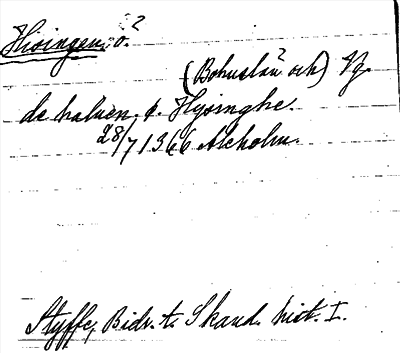 Hisingen, ö. 2
(Bohuslän och) Vg.
de haluen ø. Hysinghe
28/7 1366 Aleholm.
Styffe, Bidr. t. Skand. hist. I.